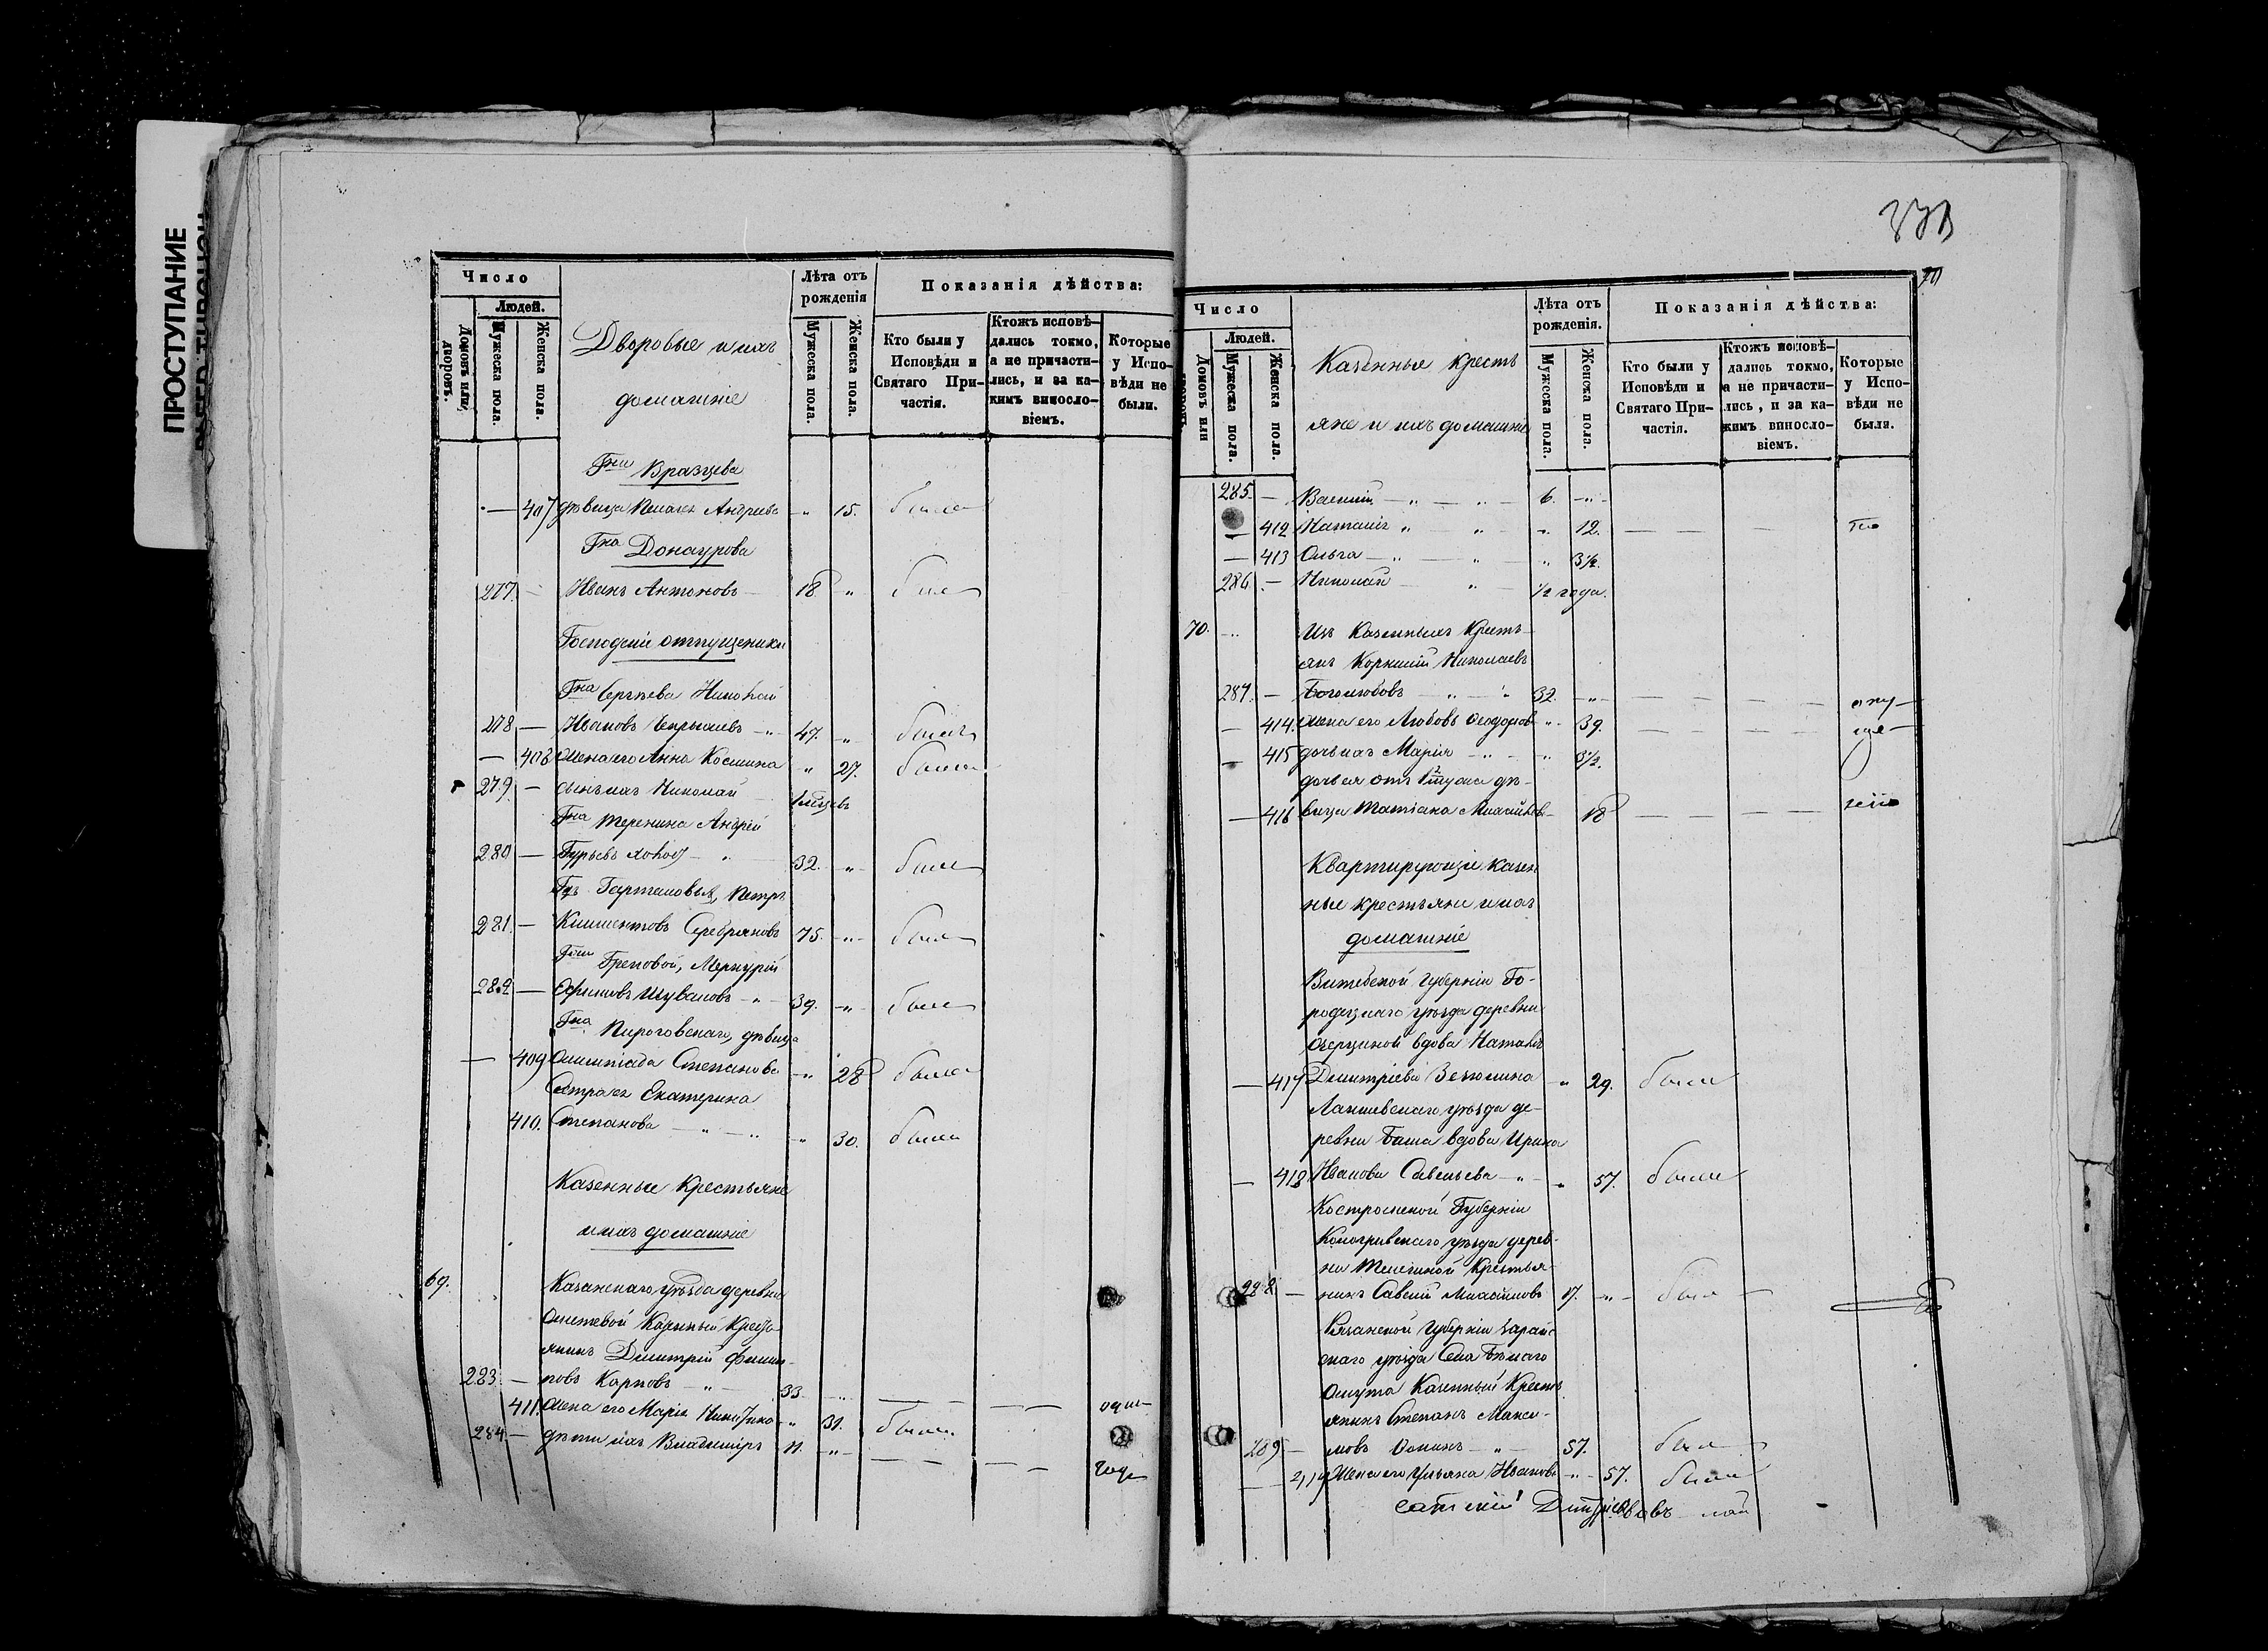 ПРОСТУПАНИЕ
Число
Людей.
Домовъ или дворовъ.
Мужеска пола.
Женска пола.
Дворовые и ихъ
домашніе
Лѣта отъ рожденія
Мужеска пола.
Женска пола.
Показанія дѣйства:
Кто были у Исповѣди и Святаго Причастія.
Ктожъ исповѣдались токмо, а не причастились, и за какимъ винословіемъ.
Которые у Исповѣди не были.
407 дѣвица Андреева „ 15. была
Гна Донаурова
277. — Иванъ Антоновъ — 18 „ былъ
Господскіе отпущеники
Гна Сергѣева Николай
278 — Ивановъ 47. „ былъ
— 408 жена его Анна Космина „ 27. была
279. — сынъ ихъ Николай
Гна Теренина Андрей
280 — Гурьевъ 32. „ былъ
Петръ
281. — Климентовъ Серебряковъ 75. „ былъ
Грековой, Меркурій
282 — Ефимовъ Шуваловъ „ 39. „ былъ
Гна Пироговскаго, дѣвица
— 409 Олимпіада Степанова „ 28 была
Сестра ея Екатерина
410. Степанова „ „ „ 30. была
Казенные Крестьяне
и ихъ домашніе
69. Казанскаго уѣзда деревни
Казенный Крестьянинъ Дмитрій Филип-
283. — повъ Карповъ „ 33 „
411. жена его Марія Никитина „ 31. была
284. — дѣти ихъ Владиміръ 11. „
Число
Людей.
Домовъ или дворовъ.
Мужеска пола.
Женска пола.
Казенные кресть
яне и ихъ домашніе
Лѣта отъ рожденія.
Мужеска пола.
Женска пола.
Показанія дѣйства:
Кто были у Исповѣди и Святаго Причастія.
Ктожъ исповѣдались токмо, а не причастились, и за какимъ винословіемъ.
Которые у Исповѣди не были.
285. — Василій „ „ 6. „
— 412 Наталія „ „ „ 12.
— 413 Ольга „ „ „ 3½.
286. — Николай „ ½ года.
70. Изъ Казенныхъ Кресть-
янъ Корнилій Николаевъ
287. — Боголюбовъ „ „ 32. „
— 414. жена его Любовь Ѳеодорова „ 39.
— 415 дочь ихъ Марія „ „ 3½.
дочь ея отъ 1 мужа дѣ-
— 416 вица Татіана Михайлова 18
Квартирующіе казен
ные крестьяне и ихъ
домашніе
Витебской Губерніи Го-
родецкаго уѣзда деревни
вдова Наталья
— 417 Дмитріева „ 29. была
Лаишевскаго уѣзда де-
ревни вдова Ирина
— 418 Иванова Савельева „ „ 57. была
Костромской Губерніи
Кологривскаго уѣзда дерев-
ни Крестья-
288 — нинъ Савелій Михайловъ 17. „ былъ
Рязанской Губерніи Зарайс
скаго уѣзда Села Бѣлаго
Омута Казенный Кресть
янинъ Степанъ Макси-
289 — мовъ „ 57. былъ
419 Жена его Ульяна Иванова „ 57. была